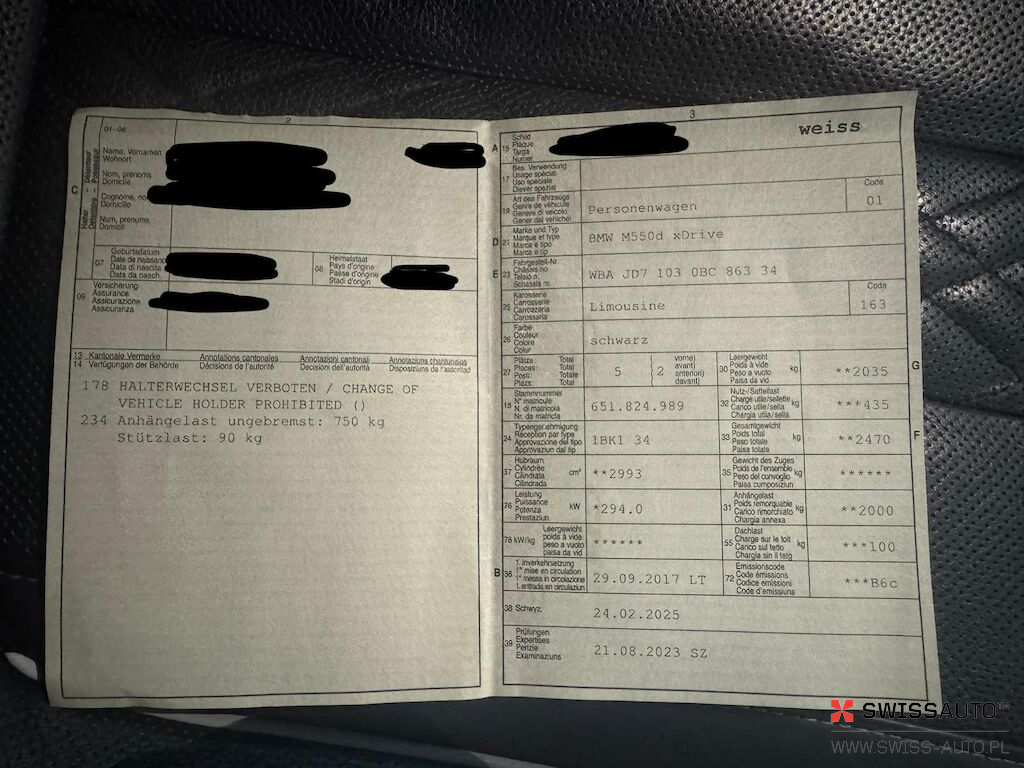 2
01-06
C
Haber
Détenteur
Detentore
Possessur
Name, Vornamen
Wohnort
Nom, prénoms
Domicile
Cognome, no
Domicilio
Num, prenums
Domicil
07
Geburtsdatum
Date de naissance
Data di nascita
Data da nasch.
08
Heimatstaat
Pays d'origine
Paese d'origine
Stadi d'origin
09
Versicherung
Assurance
Assicurazione
Assicuranza
13 Kantonale Vermerke Annotations cantonales Annotazioni cantonali Annotaziuns chantunalas
14 Verfügungen der Behörde Décisions de l'autorité Decisioni dell'autorità Disposiziuns da l'autoritad
178 HALTERWECHSEL VERBOTEN / CHANGE OF
VEHICLE HOLDER PROHIBITED ()
234 Anhängelast ungebremst: 750 kg
Stützlast: 90 kg
3
A 15
Schild
Plaque
Targa
Numer
weiss
17
Bes. Verwendung
Usage spécial
Uso speciale
Diever spezial
19
Art des Fahrzeugs
Genre de véhicule
Genere di veicolo
Gener dal vehichel
Personenwagen
Code
01
D 21
Marke und Typ
Marque et type
Marca e tipo
Marca e tip
BMW M550d xDrive
E 23
Fahrgestell-Nr.
Châssis no
Telaio n.
Schassis nr.
WBA JD7 103 0BC 863 34
25
Karosserie
Carrosserie
Carrozzeria
Carossaria
Limousine
Code
163
26
Farbe
Couleur
Colore
Colur
schwarz
27
Plätze: Total
Places: Total
Posti: Totale
Plazs: Total
5
( vorne)
( 2 avant)
( anteriori)
( davant)
30
Leergewicht
Poids à vide
Peso a vuoto
Paisa da vid
kg
**2035
G
18
Stammnummer
N° matricule
N. di matricola
Nr. da matricla
651.824.989
32
Nutz-/Sattellast
Charge utile/sellette
Carico utile/sella
Chargia utila/sella
kg
***435
24
Typengenehmigung
Réception par type
Approvazione del tipo
Approvaziun dal tip
1BK1 34
33
Gesamtgewicht
Poids total
Peso totale
Paisa totala
kg
**2470
F
37
Hubraum
Cylindrée
Cilindrata
Cilindrada
cm³
**2993
35
Gewicht des Zuges
Poids de l'ensemble
Peso del convoglio
Paisa cumposiziun
kg
******
76
Leistung
Puissance
Potenza
Prestaziun
kW
*294.0
31
Anhängelast
Poids remorquable
Carico rimorchiato
Chargia annexa
kg
**2000
78 kW/kg
Leergewicht
poids à vide
peso a vuoto
paisa da vid
******
55
Dachlast
Charge sur le toit
Carico sul tetto
Chargia sin il tetg
kg
***100
B 36
1. Inverkehrsetzung
1re mise en circulation
1a messa in circolazione
1. entrada en circulaziun
29.09.2017 LT
72
Emissionscode
Code émissions
Codice emissioni
Code d'emissiuns
***B6c
38 Schwyz,
24.02.2025
39
Prüfungen
Expertises
Perizie
Examinaziuns
21.08.2023 SZ
SWISSAUTO
WWW.SWISS-AUTO.PL